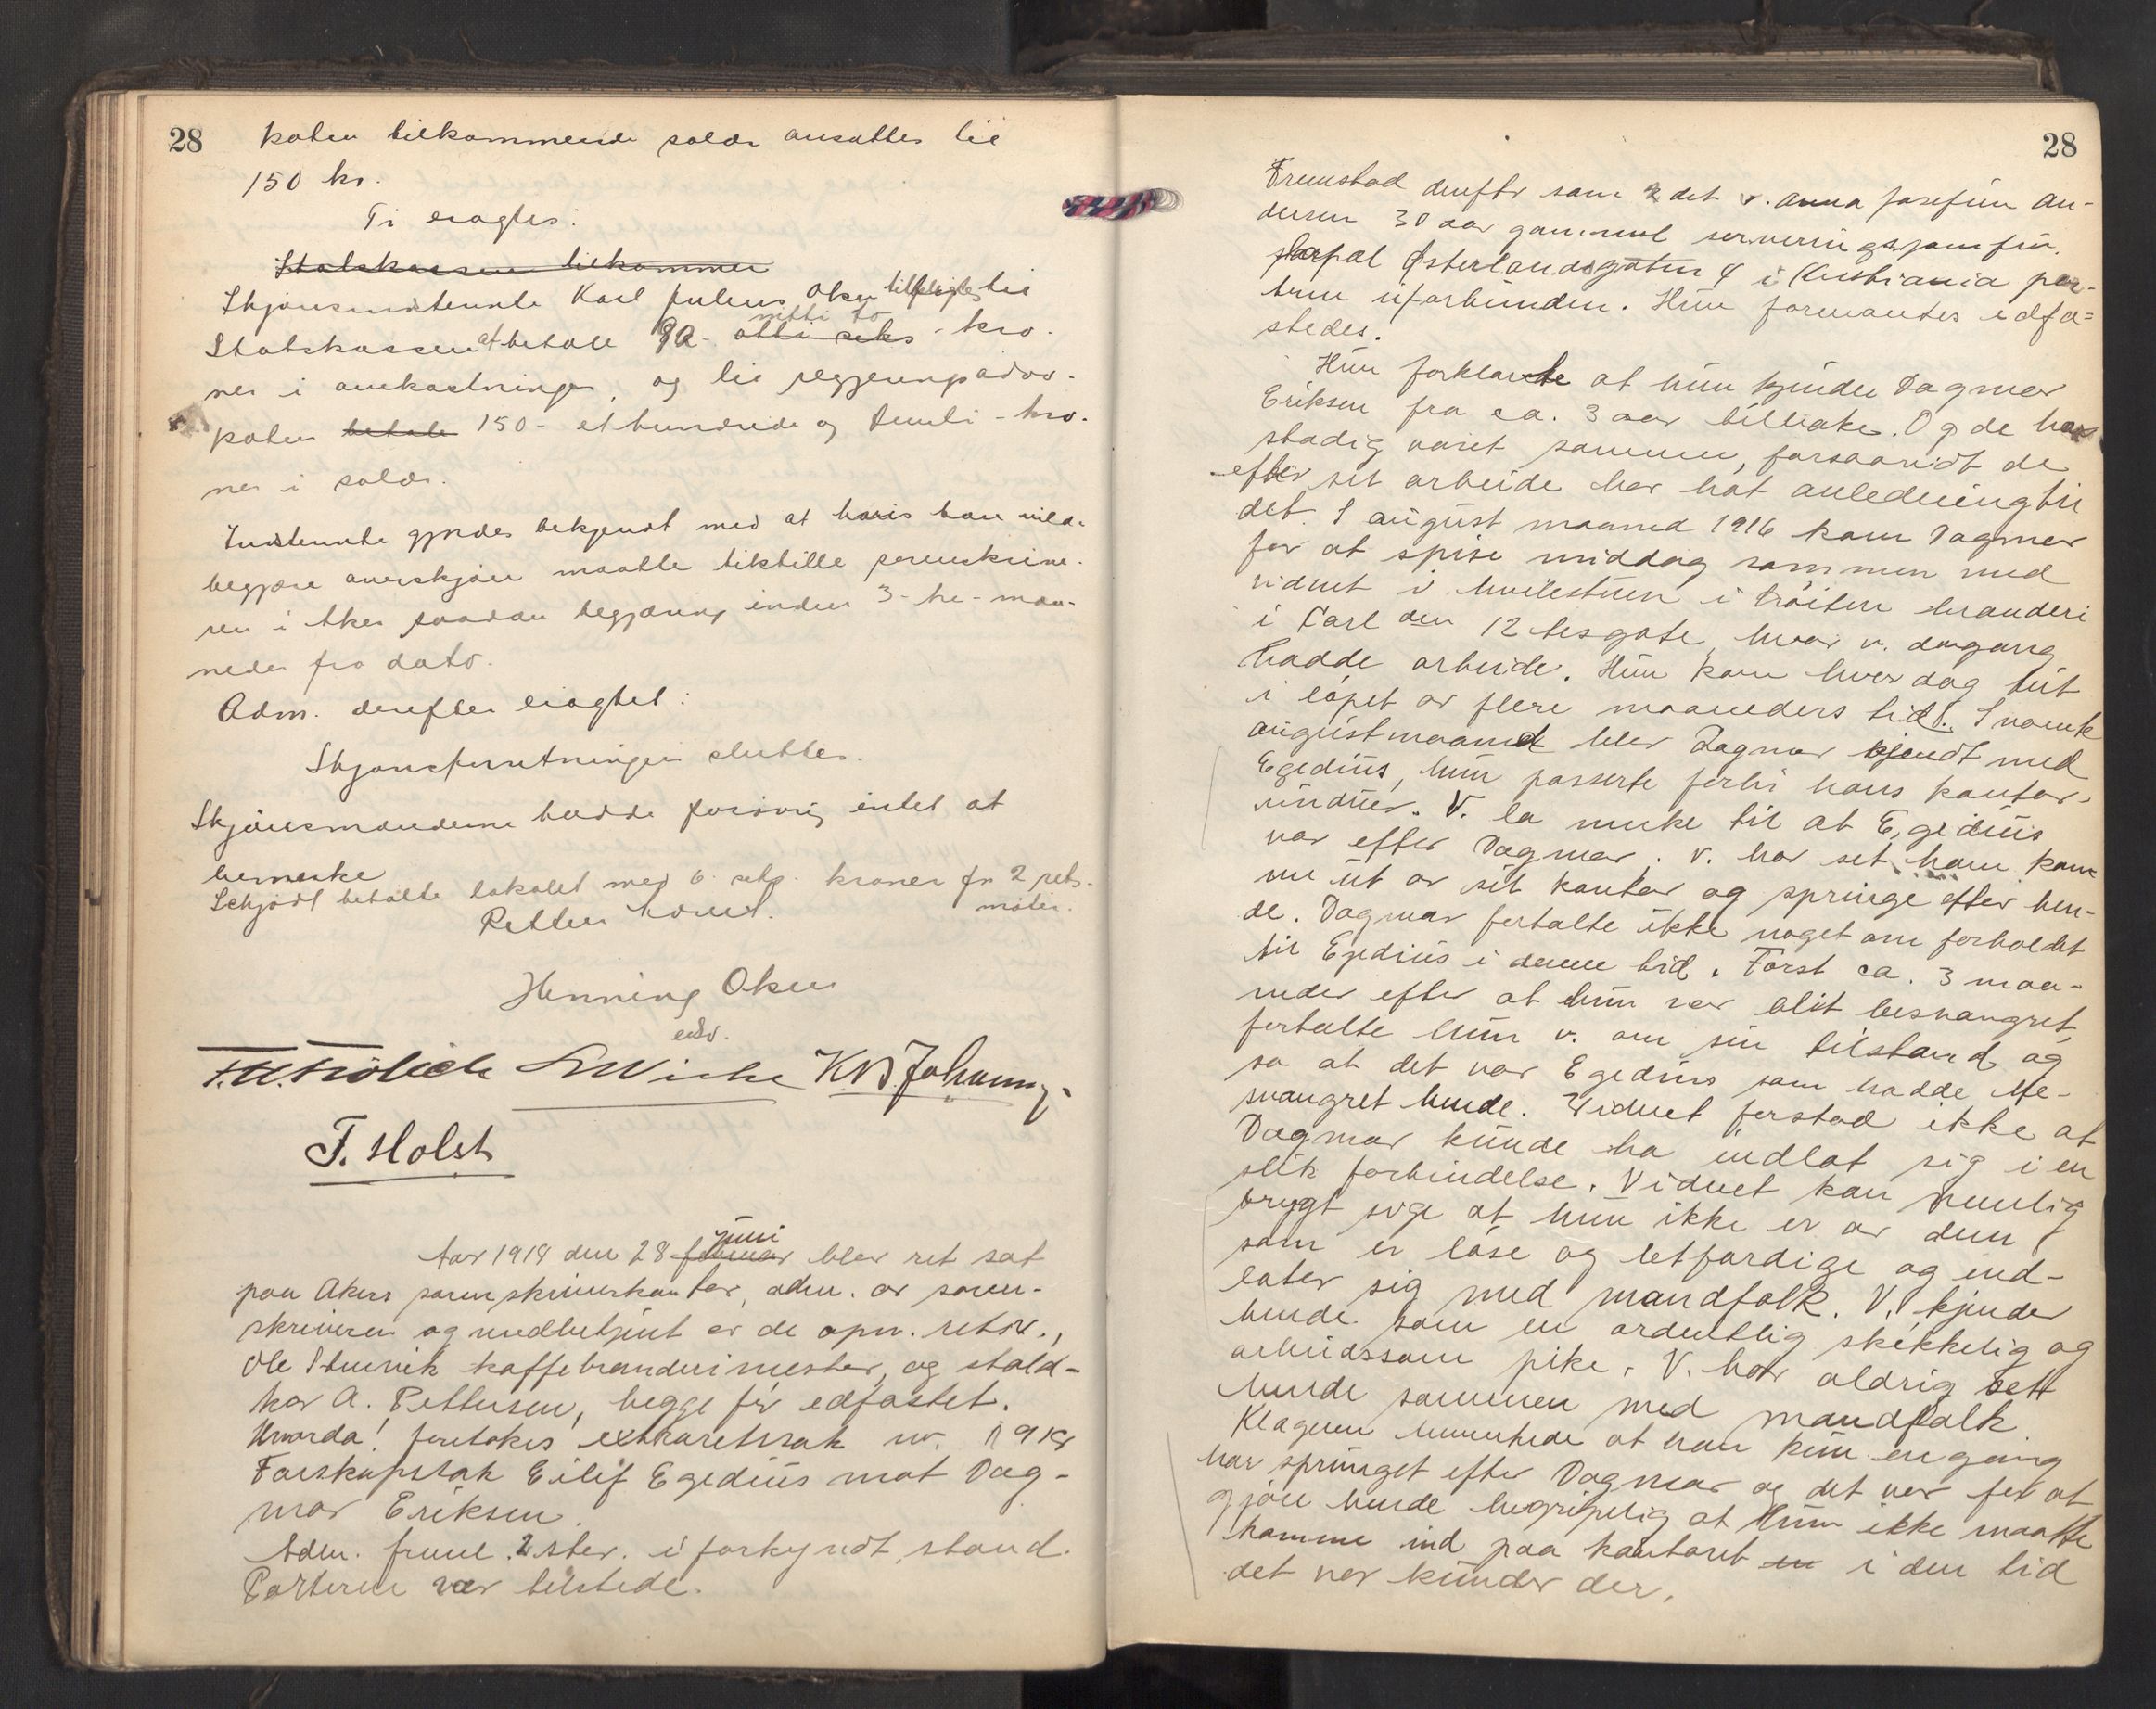 28
katen tilkommende salær ansattes til
150 kr.
Ti eragtes:
Statskassen tilkommer
Skjønsindstevnte Karl Julius Olsen tilpligtes til
Statskassen at betale 92 - otti seks nitti to - kro-
ner i omkostninger, og til regjeringsadvo-
katen betale 150 - et hundrede og femti - kro-
ner i salær.
Indstevnte gjordes bekjendt med at hvis han vilde
begjære overskjøn maatte tilstille sorenskrive-
ren i Aker saadan begjæring inden 3 - tre - maa-
neder fra dato.
Adm. derefter eragtet:
Skjønsforretningen sluttes.
Skjønsmændene hadde forøvrig intet at
bemerke
Schjødt betalte lokalet med 6 seks kroner for 2 rets-
møter.
Petter
Henning Olsen
edv.
K. B. Johannes
F. Holst
Aar 1918 den 28 februar juni blev ret sat
paa Akers sorenskriverkontor, adm. av soren-
skriveren og medbetjent av de opn. retsv.,
Ole Stensvik kaffebrænderimester, og stald-
kar A. Pettersen, begge før edfæstet.
Hvorda! foretokes extraretssak nr. 1918
Farskapssak Eilif Egedius mot Dag-
mar Eriksen.
Adm. freml. 2 stev. i forkyndt stand.
Parterne var tilstede.
28
Fremstod derefter som 2det v. Anna Josefine An-
dersen 30 aar gammel serveringsjomfru,
Østerlandsgaten 4 i Kristiania par-
terne uforbunden. Hun formantes edfæ-
stedes.
Hun forklarte at hun kjender Dagmar
Eriksen fra ca. 3 aar tilbake. Og de har
stadig været sammen, forsaavidt de
efter sit arbeide har hat anledning til
det. I august maaned 1916 kom Dagmar
for at spise middag sammen med
vidnet i hvilestuen i brænderi
i Carl den 12tesgate, hvor v. dengang
hadde arbeide. Hun kom hver dag dit
i løpet av flere maaneders tid. I nævnte
augustmaaned blev Dagmar kjendt med
Egedius, hun passerte forbi hans kontor-
vinduer. V. la merke til at Egedius
var efter Dagmar. V. har set ham kom-
me ut av sit kontor og springe efter hen-
de. Dagmar fortalte ikke noget om forholdet
til Egedius i denne tid. Først ca. 3 maa-
neder efter at hun var blit besvangret,
fortalte hun v. om sin tilstand, og
sa at det var Egedius som hadde be-
svangret hende. Vidnet forstod ikke at
Dagmar kunde ha indlat sig i en
slik forbindelse. Vidnet kan nemlig
trygt sige at hun ikke er av dem
som er løse og letfærdige og ind-
later sig med mandfolk. V. kjender
hende som en ordentlig skikkelig og
arbeidssom pike. V. har aldrig sett
hende sammen med mandfolk.
Klageren bemerkede at han kun engang
har sprunget efter Dagmar og det var for at
gjøre hende begripelig at hun ikke maatte
komme ind paa kontoret en i den tid
det var kunder der.